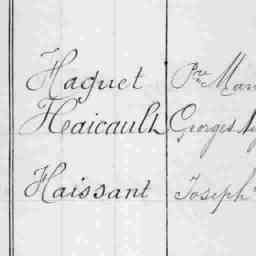 Haquet Pre Mar
Haicault Georges
Haissant Joseph